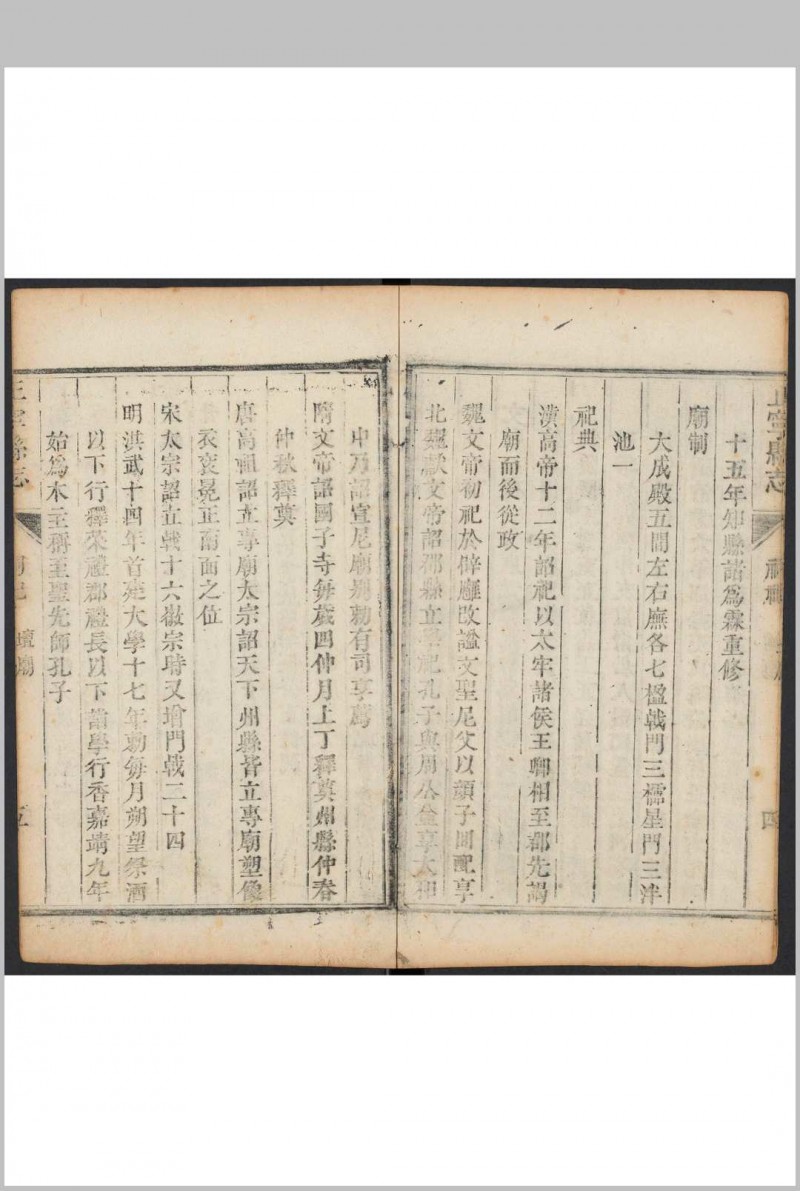 十五年知縣諸爲霖重修
廟制
大成殿五間左右廡各七楹戟門三櫺星門三泮
池一
祀典
漢高帝十二年詔祀以太牢諸侯王卿相至郡先謁
廟而後從政
魏文帝初祀於辟廱改謚文聖尼父以顏子回配享
北魏獻文帝詔郡縣立學祀孔子與周公並享太和
中乃詔宣尼廟別勅有司享薦
隋文帝詔國子寺每歲四仲月上丁釋奠州縣仲春
仲秋釋奠
唐高祖詔立專廟太宗詔天下州縣皆立專廟塑像
衣袞冕正南面之位
宋太宗詔立戟十六徽宗時又增門戟二十四
明洪武十四年首建大學十七年勅每月朔望祭酒
以下行釋菜禮郡縣長以下詣學行香嘉靖九年
始爲木主稱至聖先師孔子
正寧縣志
四
正寧縣志
壇廟
五